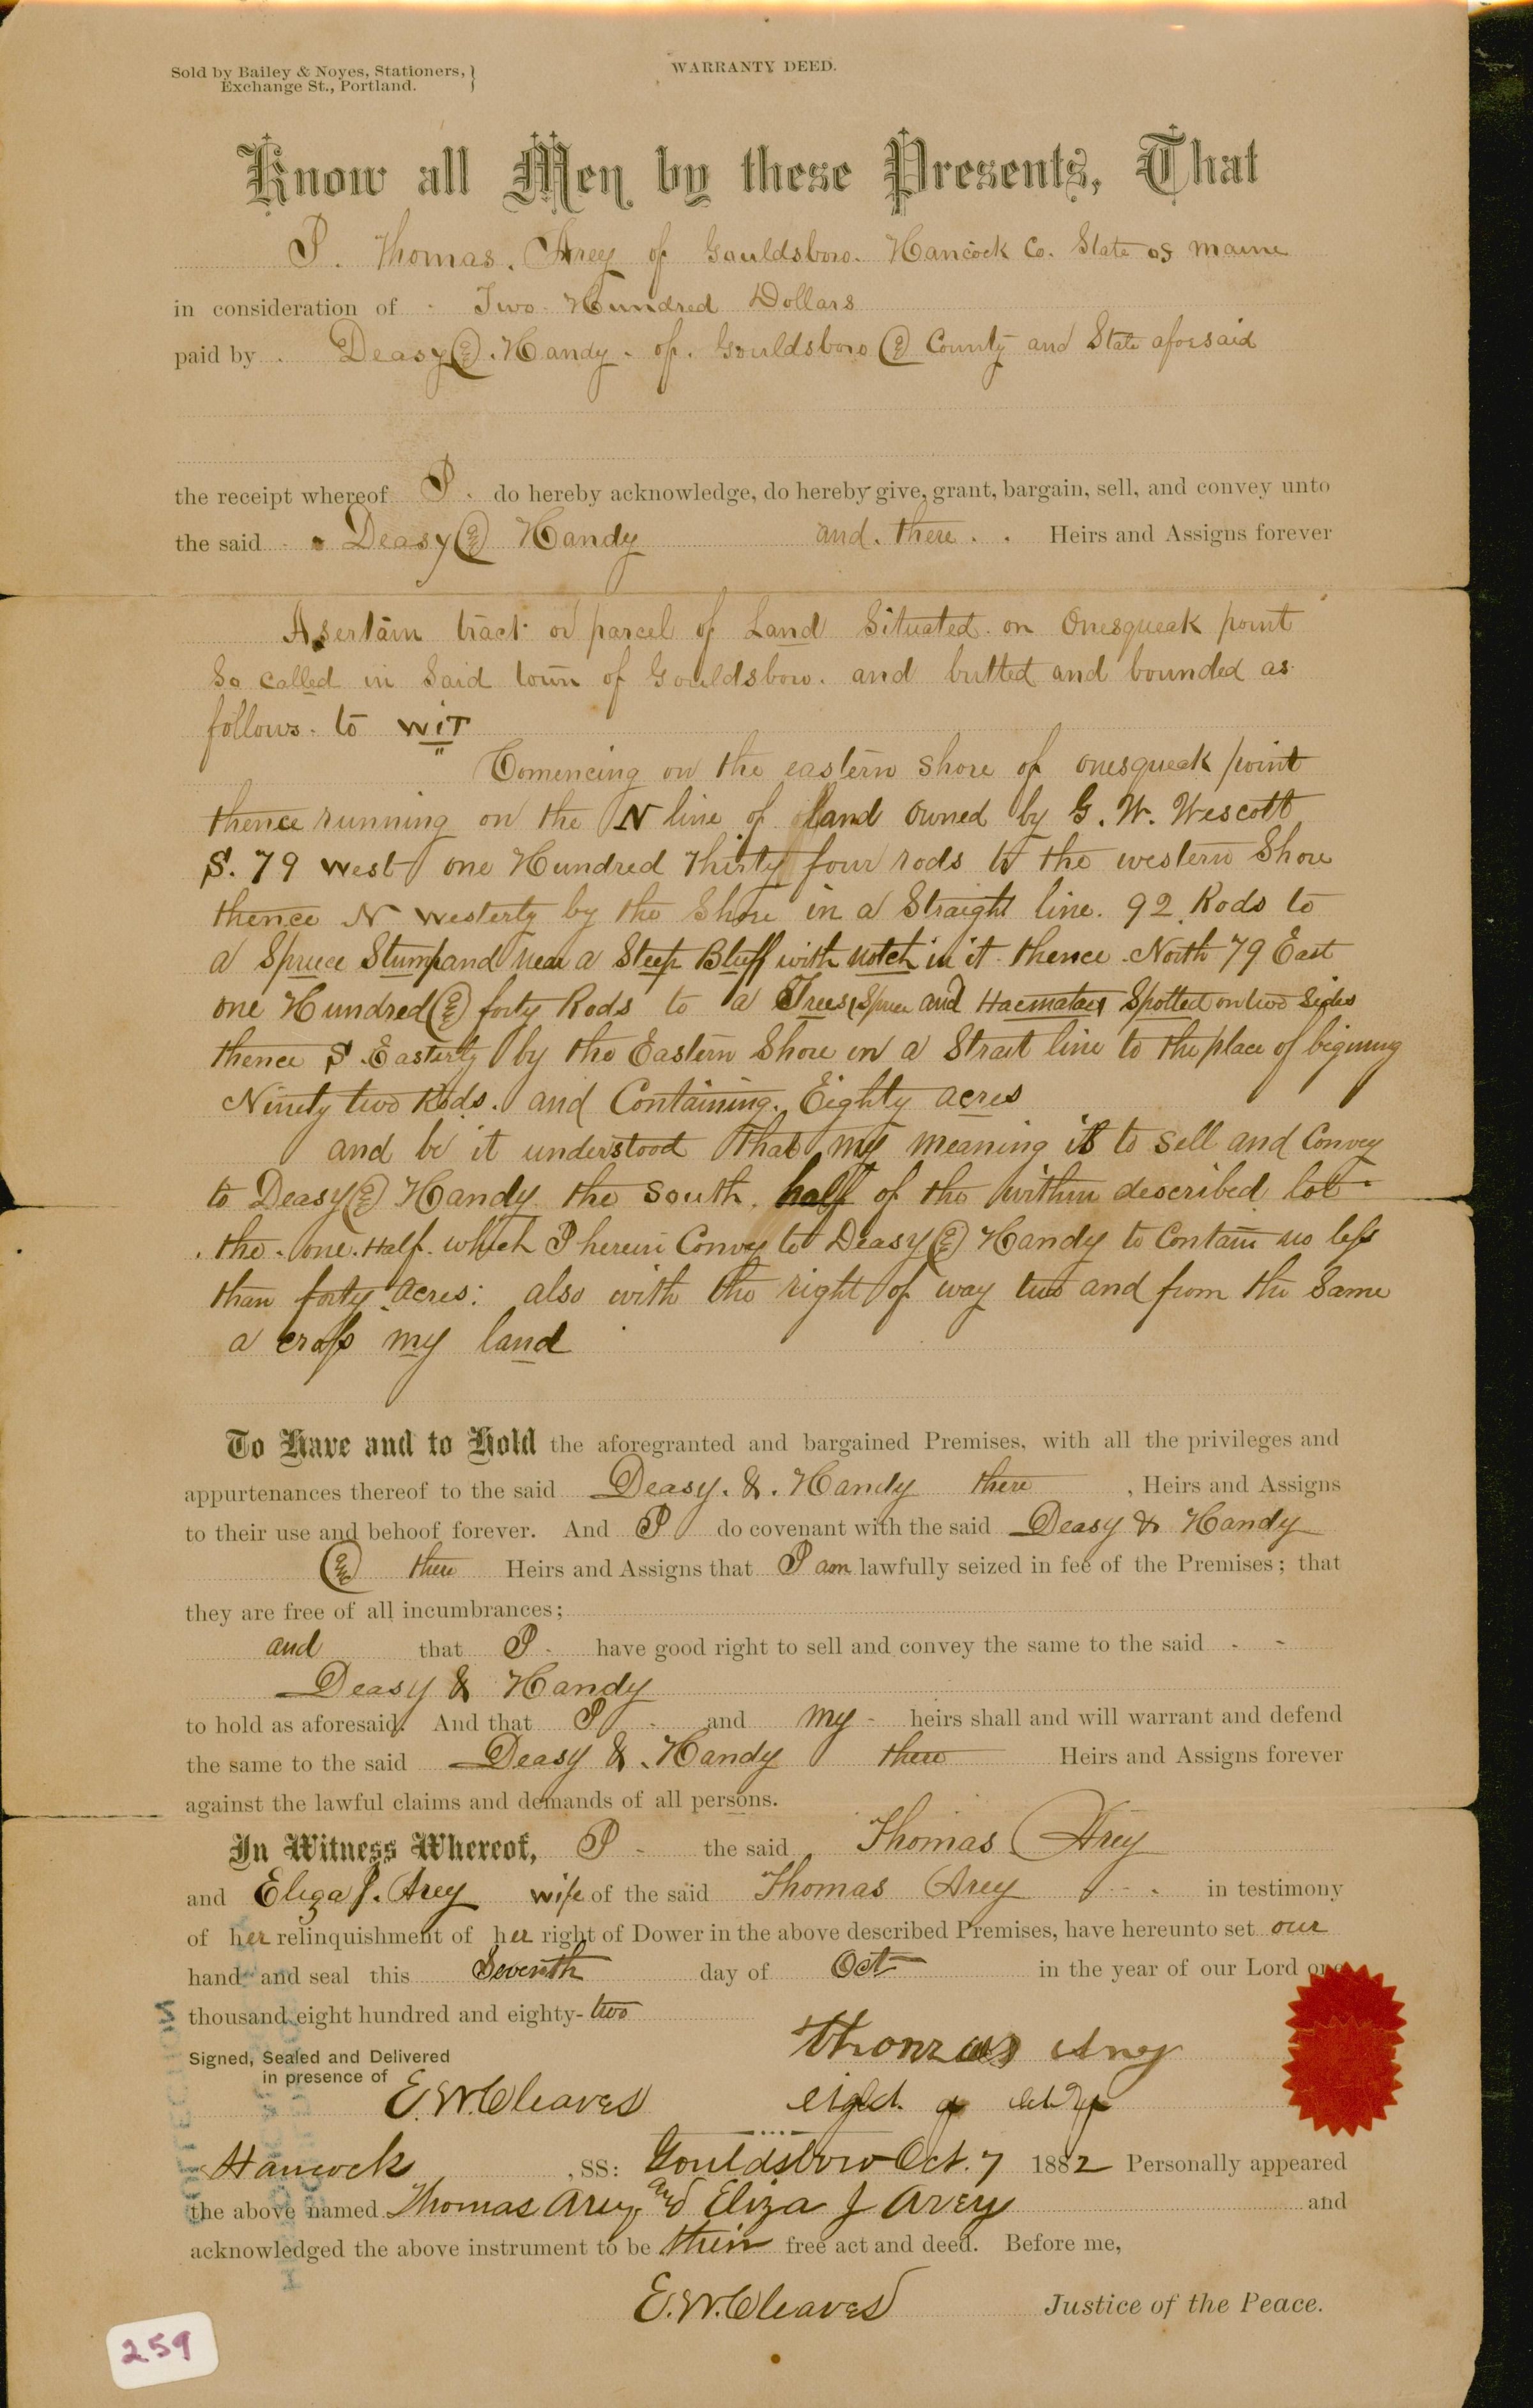 Sold by Bailey & Noyes, Stationers,
Exchange St., Portland.
WARRANTY DEED.
Know all Men by these Presents, That
I. Thomas. Arey of Gouldsboro. Hancock Co. State of maine
in consideration of Two Hundred Dollars
paid by Deasy & Handy of Gouldsboro & County and State aforsaid
the receipt whereof I do hereby acknowledge, do hereby give, grant, bargain, sell, and convey unto
the said Deasy & Handy and there Heirs and Assigns forever
A sertain tract or parcel of Land Situated on Onesqueak point
So called in Said town of Gouldsboro. and butted and bounded as
follows. to WiT
Comencing on the eastern Shore of onesqueak point
thence running on the N line of land owned by G. W. Wescott
S. 79 west one Hundred Thirty four rods to the western Shore
thence N westerty by the Shore in a Straight line. 92 Rods to
a Spruce Stump and near a Steep Bluff with notch in it thence North 79 East
one Hundred & forty Rods to a Trees Spruce and Spotted on two Sides
thence S Easterty by the Eastern Shore in a Strait line to the place of begining
Ninety two Rods. and Containing. Eighty acres
and be it understood that my meaning is to Sell and Convey
to Deasy & Handy the South. half of the within described lot
the one Half which I herein Convey to Deasy & Handy to Contain no less
than forty acres: also with the right of way two and from the Same
a cross my land
To Have and to Hold the aforegranted and bargained Premises, with all the privileges and
appurtenances thereof to the said Deasy. &. Handy there, Heirs and Assigns
to their use and behoof forever. And I do covenant with the said Deasy & Handy
& there Heirs and Assigns that I am lawfully seized in fee of the Premises; that
they are free of all incumbrances;
and that I have good right to sell and convey the same to the said
Deasy & Handy
to hold as aforesaid. And that I and my heirs shall and will warrant and defend
the same to the said Deasy & Handy there Heirs and Assigns forever
against the lawful claims and demands of all persons.
In Witness Whereof, I the said Thomas Arey
and Eliza J. Arey wife of the said Thomas Arey in testimony
of her relinquishment of her right of Dower in the above described Premises, have hereunto set our
hand and seal this Seventh day of Oct in the year of our Lord one
thousand eight hundred and eighty-two
Signed, Sealed and Delivered
in presence of
Thomas Arey
E. W. Cleaves
Hancock, SS: Gouldsboro Oct. 7 1882 Personally appeared
the above named Thomas Arey and Eliza J Avery and
acknowledged the above instrument to be their free act and deed. Before me,
E. W. Cleaves Justice of the Peace.
259